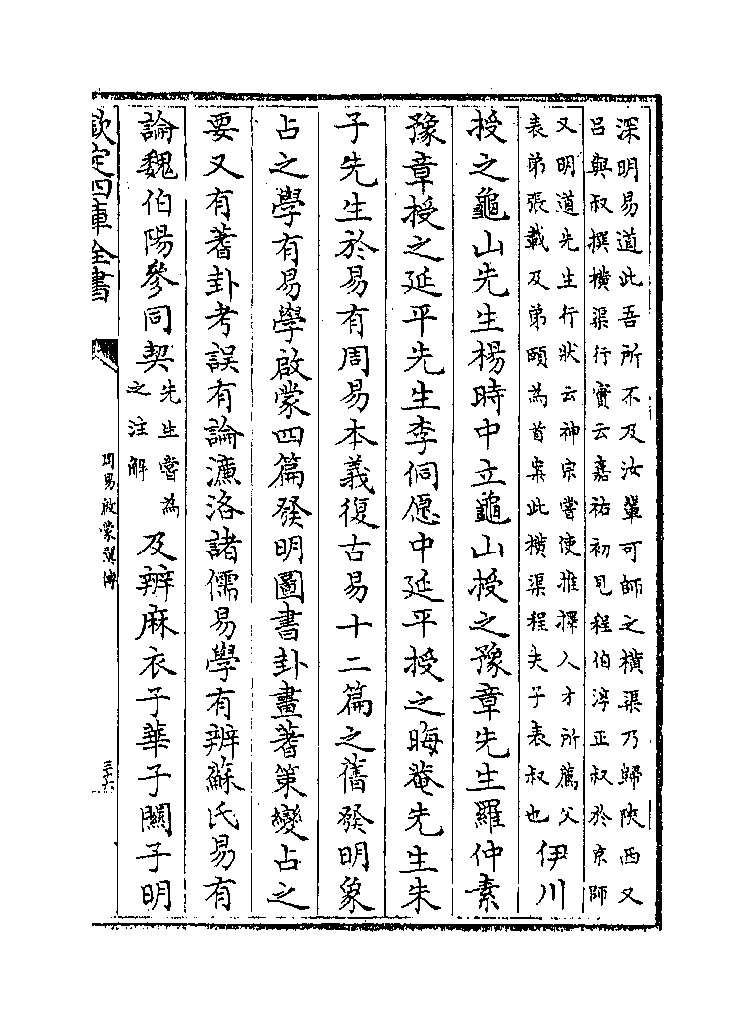 深明易道此吾所不及汝輩可師之橫渠乃歸陜西又
呂與叔撰橫渠行實云嘉祐初見程伯淳正叔於京師
又明道先生行狀云神宗嘗使推擇人才所薦父
表弟張載及弟頤為首案此橫渠程夫子表叔也
伊川
授之龜山先生楊時中立龜山授之豫章先生羅仲素
豫章授之延平先生李侗愿中延平授之晦菴先生朱
子先生於易有周易本義復古易十二篇之舊發明象
占之學有易學啟蒙四篇發明圖書卦畫蓍策變占之
要又有蓍卦考誤有論濂洛諸儒易學有辨蘇氏易有
論魏伯陽參同契
先生嘗為
之注解
及辨麻衣子華子關子明
欽定四庫全書
周易啟蒙翼傳
三十六